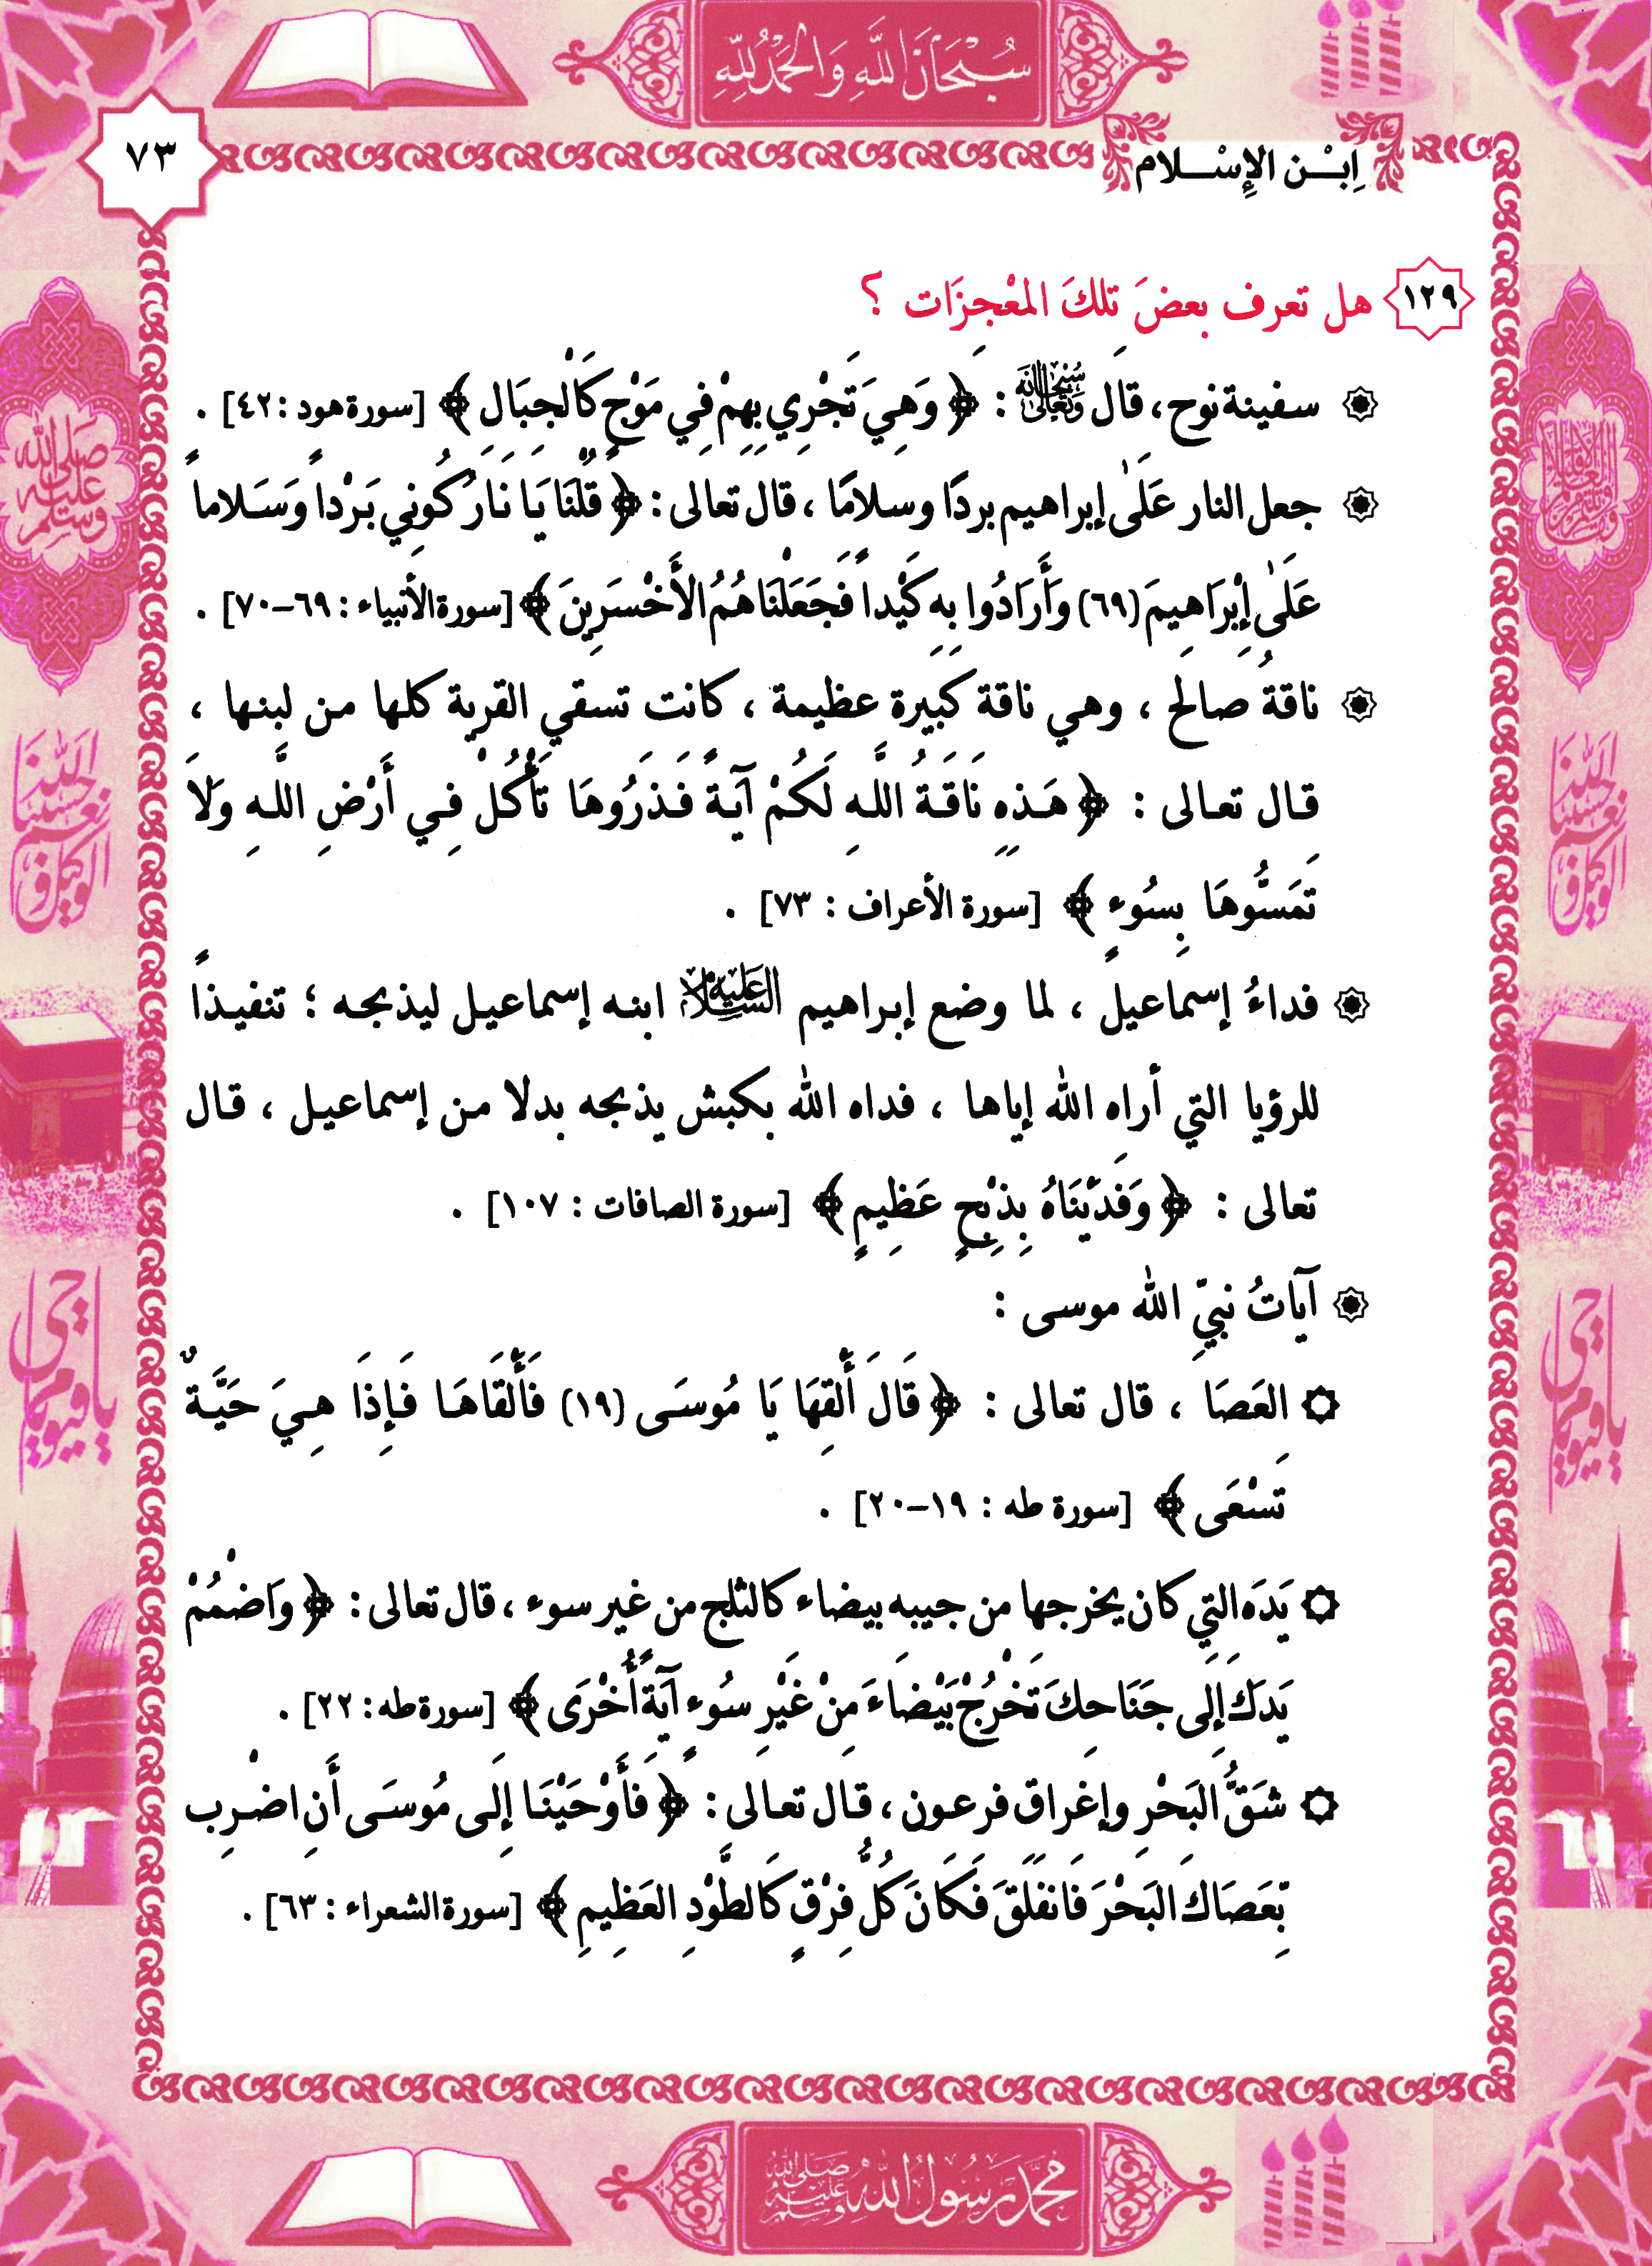 سُبْحَانَ اللَّهِ وَالْحَمْدُ لِلَّهِ
٧٣
اِبْـن الإِسْـلام
١٢٩ هل تعرف بعضَ تلكَ المعْجزَات ؟
سفينة نوح، قال سُبْحَانَهُ وَتَعَالَىٰ : ﴿ وَهِيَ تَجْرِي بِهِمْ فِي مَوْجٍ كَالْجِبَالِ ﴾ [سورة هود : ٤٢] .
جعل النار عَلَىٰ إبراهيم بردًا وسلامًا ، قال تعالى : ﴿ قُلْنَا يَا نَارُ كُونِي بَرْداً وَسَلاماً
عَلَىٰ إِبْرَاهِيمَ (٦٩) وَأَرَادُوا بِهِ كَيْداً فَجَعَلْنَاهُمُ الأَخْسَرِينَ ﴾ [سورة الأنبياء : ٦٩-٧٠] .
ناقةُ صالح ، وهي ناقة كبيرة عظيمة ، كانت تسقي القرية كلها من لبنها ،
قال تعالى : ﴿ هَذِهِ نَاقَةُ اللَّهِ لَكُمْ آيَةً فَذَرُوهَا تَأْكُلْ فِي أَرْضِ اللَّهِ وَلاَ
تَمَسُّوهَا بِسُوءٍ ﴾ [سورة الأعراف : ٧٣] .
فداءُ إسماعيل ، لما وضع إبراهيم عَلَيْهِ السَّلَامُ ابنه إسماعيل ليذبحه ؛ تنفيذًا
للرؤيا التي أراه الله إياها ، فداه الله بكبش يذبحه بدلا من إسماعيل ، قال
تعالى : ﴿ وَفَدَيْنَاهُ بِذِبْحٍ عَظِيمٍ ﴾ [سورة الصافات : ١٠٧] .
آيَاتُ نبيِّ الله موسى :
العَصَا ، قال تعالى : ﴿ قَالَ أَلْقِهَا يَا مُوسَى (١٩) فَأَلْقَاهَا فَإِذَا هِيَ حَيَّةٌ
تَسْعَى ﴾ [سورة طه : ١٩-٢٠] .
يَدَه التِي كان يخرجها من جيبه بيضاء كالثلج من غير سوء ، قال تعالى : ﴿ وَاضْمُمْ
يَدَكَ إِلَى جَنَاحِكَ تَخْرُجْ بَيْضَاءَ مِنْ غَيْرِ سُوءٍ آيَةً أُخْرَى ﴾ [سورة طه : ٢٢] .
شَقُّ البَحْرِ وإغراق فرعون ، قال تعالى : ﴿ فَأَوْحَيْنَا إِلَى مُوسَى أَنِ اضْرِب
بِّعَصَاكَ البَحْرَ فَانفَلَقَ فَكَانَ كُلُّ فِرْقٍ كَالطَّوْدِ العَظِيمِ ﴾ [سورة الشعراء : ٦٣] .
صلى الله عليه وسلم
حسبنا الله ونعم الوكيل
يا حي يا قيوم
محمد رسول الله صلى الله عليه وسلم